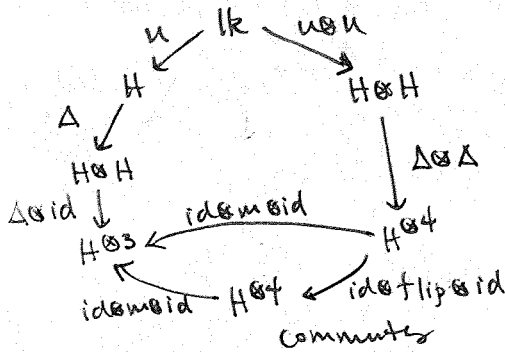 u lk u⊗u
H H⊗H
Δ
H⊗H Δ⊗Δ
Δ⊗id id⊗m⊗id
H⊗3 H⊗4
id⊗m⊗id H⊗4 id⊗flip⊗id
commutes